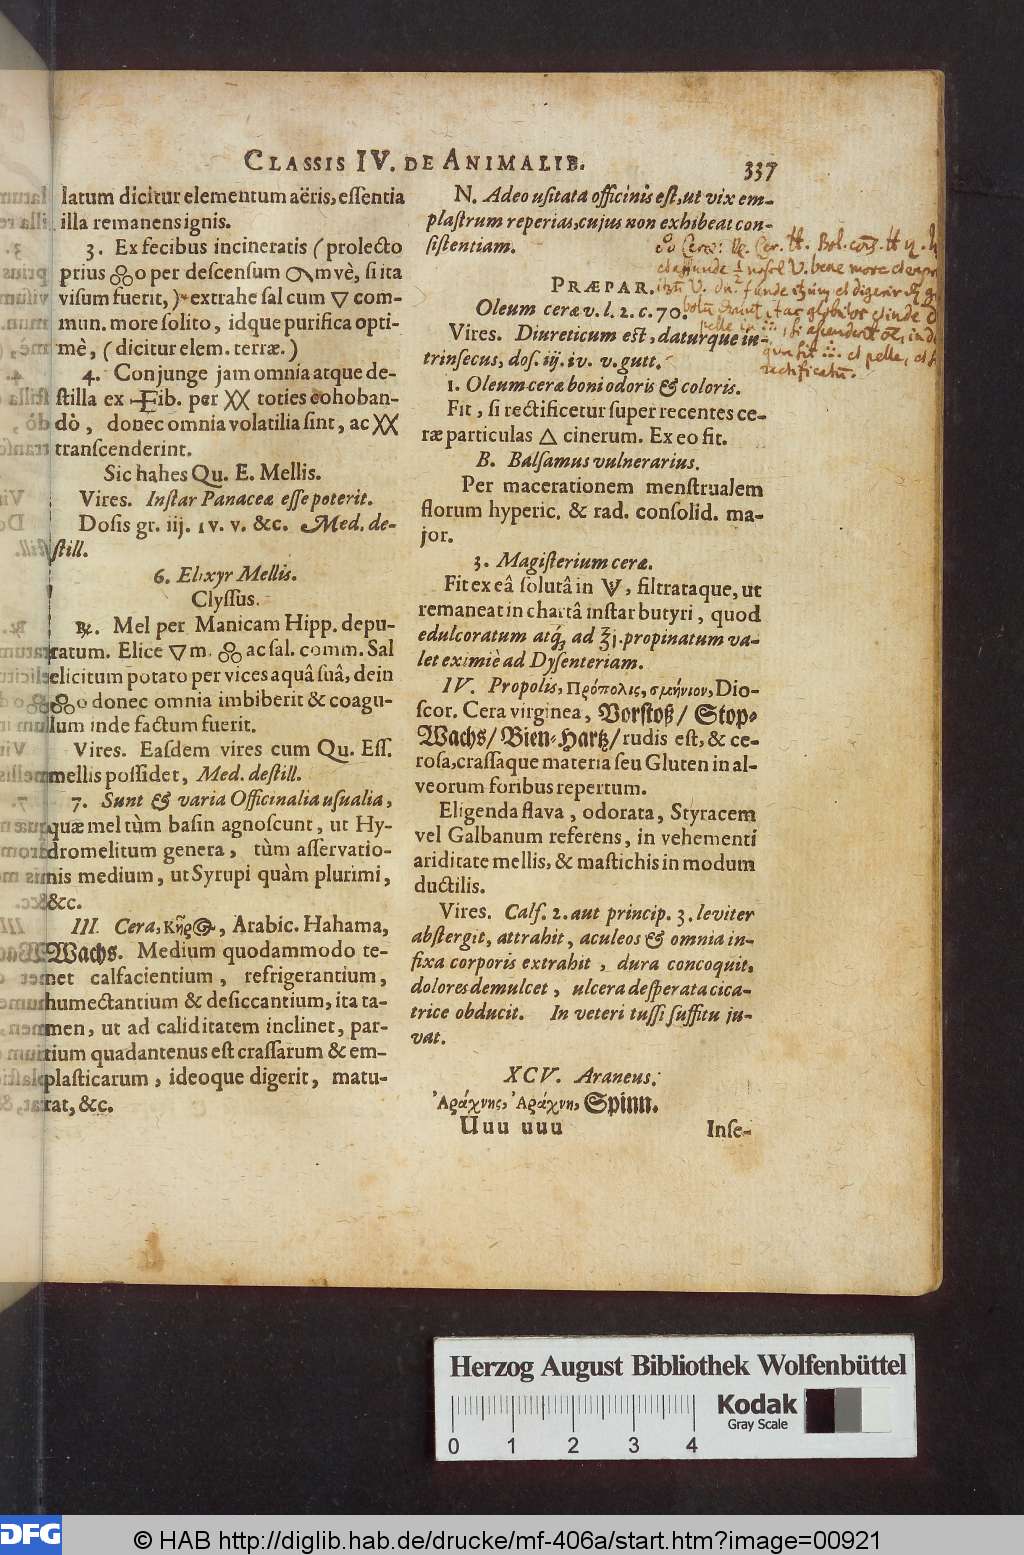 CLASSIS IV. DE ANIMALIB.
337
latum dicitur elementum aëris, eſſentia
illa remanens ignis.
3. Ex fecibus incineratis (prolecto
prius o per deſcenſum m vè, ſi ita
viſum fuerit,) extrahe ſal cum 🜄 com-
mun. more ſolito, idque purifica opti-
mè, (dicitur elem. terræ.)
4. Conjunge jam omnia atque de-
ſtilla ex ib. per XX toties cohoban-
dò, donec omnia volatilia ſint, ac XX
tranſcenderint.
Sic hahes Qu. E. Mellis.
Vires. Inſtar Panaceæ eſſe poterit.
Doſis gr. iij. iv. v. &c. Med. de-
ſtill.
6. Elixyr Mellis.
Clyſſus.
℞. Mel per Manicam Hipp. depu-
ratum. Elice 🜄m. ac ſal. comm. Sal
elicitum potato per vices aquâ ſuâ, dein
o donec omnia imbiberit & coagu-
lum inde factum fuerit.
Vires. Eaſdem vires cum Qu. Eſſ.
mellis poſſidet, Med. deſtill.
7. Sunt & varia Officinalia uſualia,
quæ mel tùm baſin agnoſcunt, ut Hy-
dromelitum genera, tùm aſſervatio-
nis medium, ut Syrupi quàm plurimi,
&c.
III. Cera, Κηρὸς, Arabic. Hahama,
Wachs. Medium quodammodo te-
net calfacientium, refrigerantium,
humectantium & deſiccantium, ita ta-
men, ut ad caliditatem inclinet, par-
tium quadantenus eſt craſſarum & em-
plaſticarum, ideoque digerit, matu-
rat, &c.
N. Adeo uſitata officinis eſt, ut vix em-
plaſtrum reperias, cujus non exhibeat con-
ſiſtentiam.
PRÆPAR.
Oleum ceræ v. l. 2. c. 70.
Vires. Diureticum eſt, daturque in-
trinſecus, doſ. iij. iv. v. gutt.
1. Oleum ceræ boni odoris & coloris.
Fit, ſi rectificetur ſuper recentes ce-
ræ particulas 🜂 cinerum. Ex eo fit.
B. Balſamus vulnerarius.
Per macerationem menſtrualem
florum hyperic. & rad. conſolid. ma-
jor.
3. Magiſterium ceræ.
Fit ex eâ ſolutâ in , filtrataque, ut
remaneat in chartâ inſtar butyri, quod
edulcoratum atq; ad ʒj. propinatum va-
let eximiè ad Dyſenteriam.
IV. Propolis, Πρόπολις, σμήνιον, Dio-
ſcor. Cera virginea, Vorſtoß/ Stop-
Wachs/ Bien-Hartz/ rudis eſt, & ce-
roſa, craſſaque materia ſeu Gluten in al-
veorum foribus repertum.
Eligenda flava, odorata, Styracem
vel Galbanum referens, in vehementi
ariditate mellis, & maſtichis in modum
ductilis.
Vires. Calf. 2. aut princip. 3. leviter
abſtergit, attrahit, aculeos & omnia in-
fixa corporis extrahit, dura concoquit,
dolores demulcet, ulcera deſperata cica-
trice obducit. In veteri tuſſi ſuffitu ju-
vat.
XCV. Araneus.
Ἀράχνης, Ἀράχνη, Spinn.
Uuu uuu
Inſe-
Herzog August Bibliothek Wolfenbüttel
0 1 2 3 4
Kodak
Gray Scale
DFG
© HAB http://diglib.hab.de/drucke/mf-406a/start.htm?image=00921